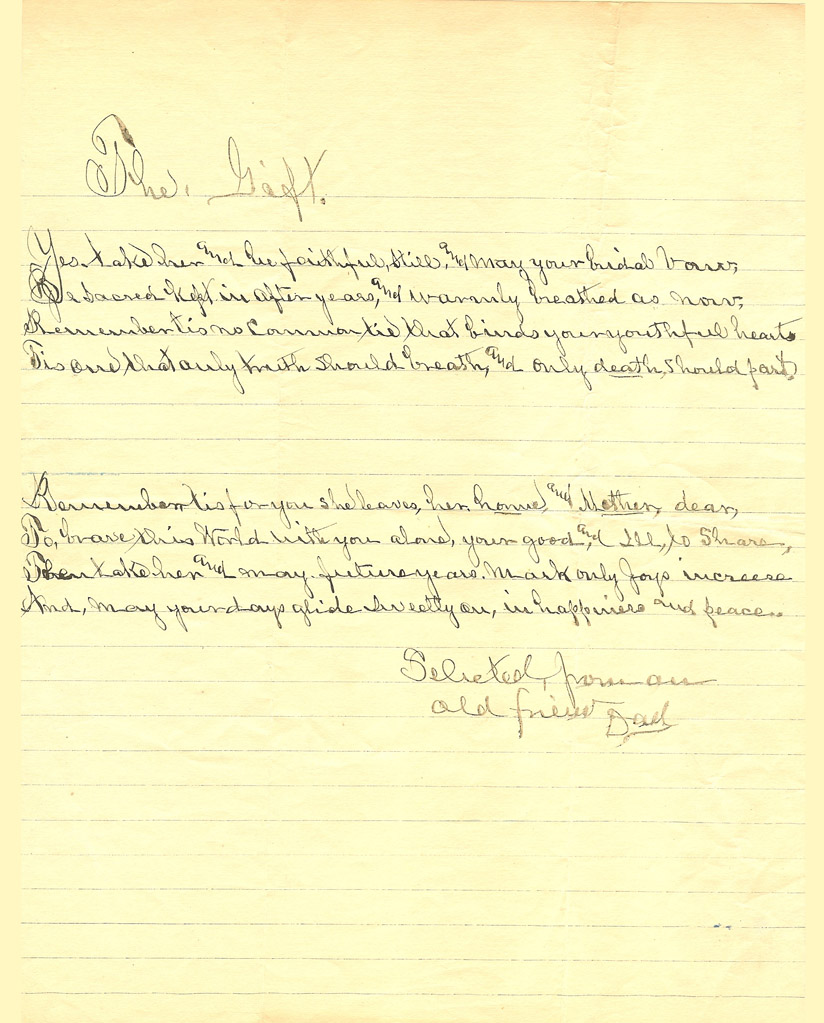 The. Gift.
Yes. take her and be faithful, still, and may your bridal Vow,
Be Sacred Kept in after years, and warmly breathed as now,
Remember tis no Common tie, that binds your youthful hearts
Tis one, that only truth should breath, and only death, should part.
Remember tis for you she leaves, her home, and Mother, dear,
To, brave this World with you alone, your good, and Ill, to Share,
Then take her and may. future years. Mark only Joys increese
And, may your days glide Sweetly on, in happiness and peace..
Selected, from an
old friend Dad